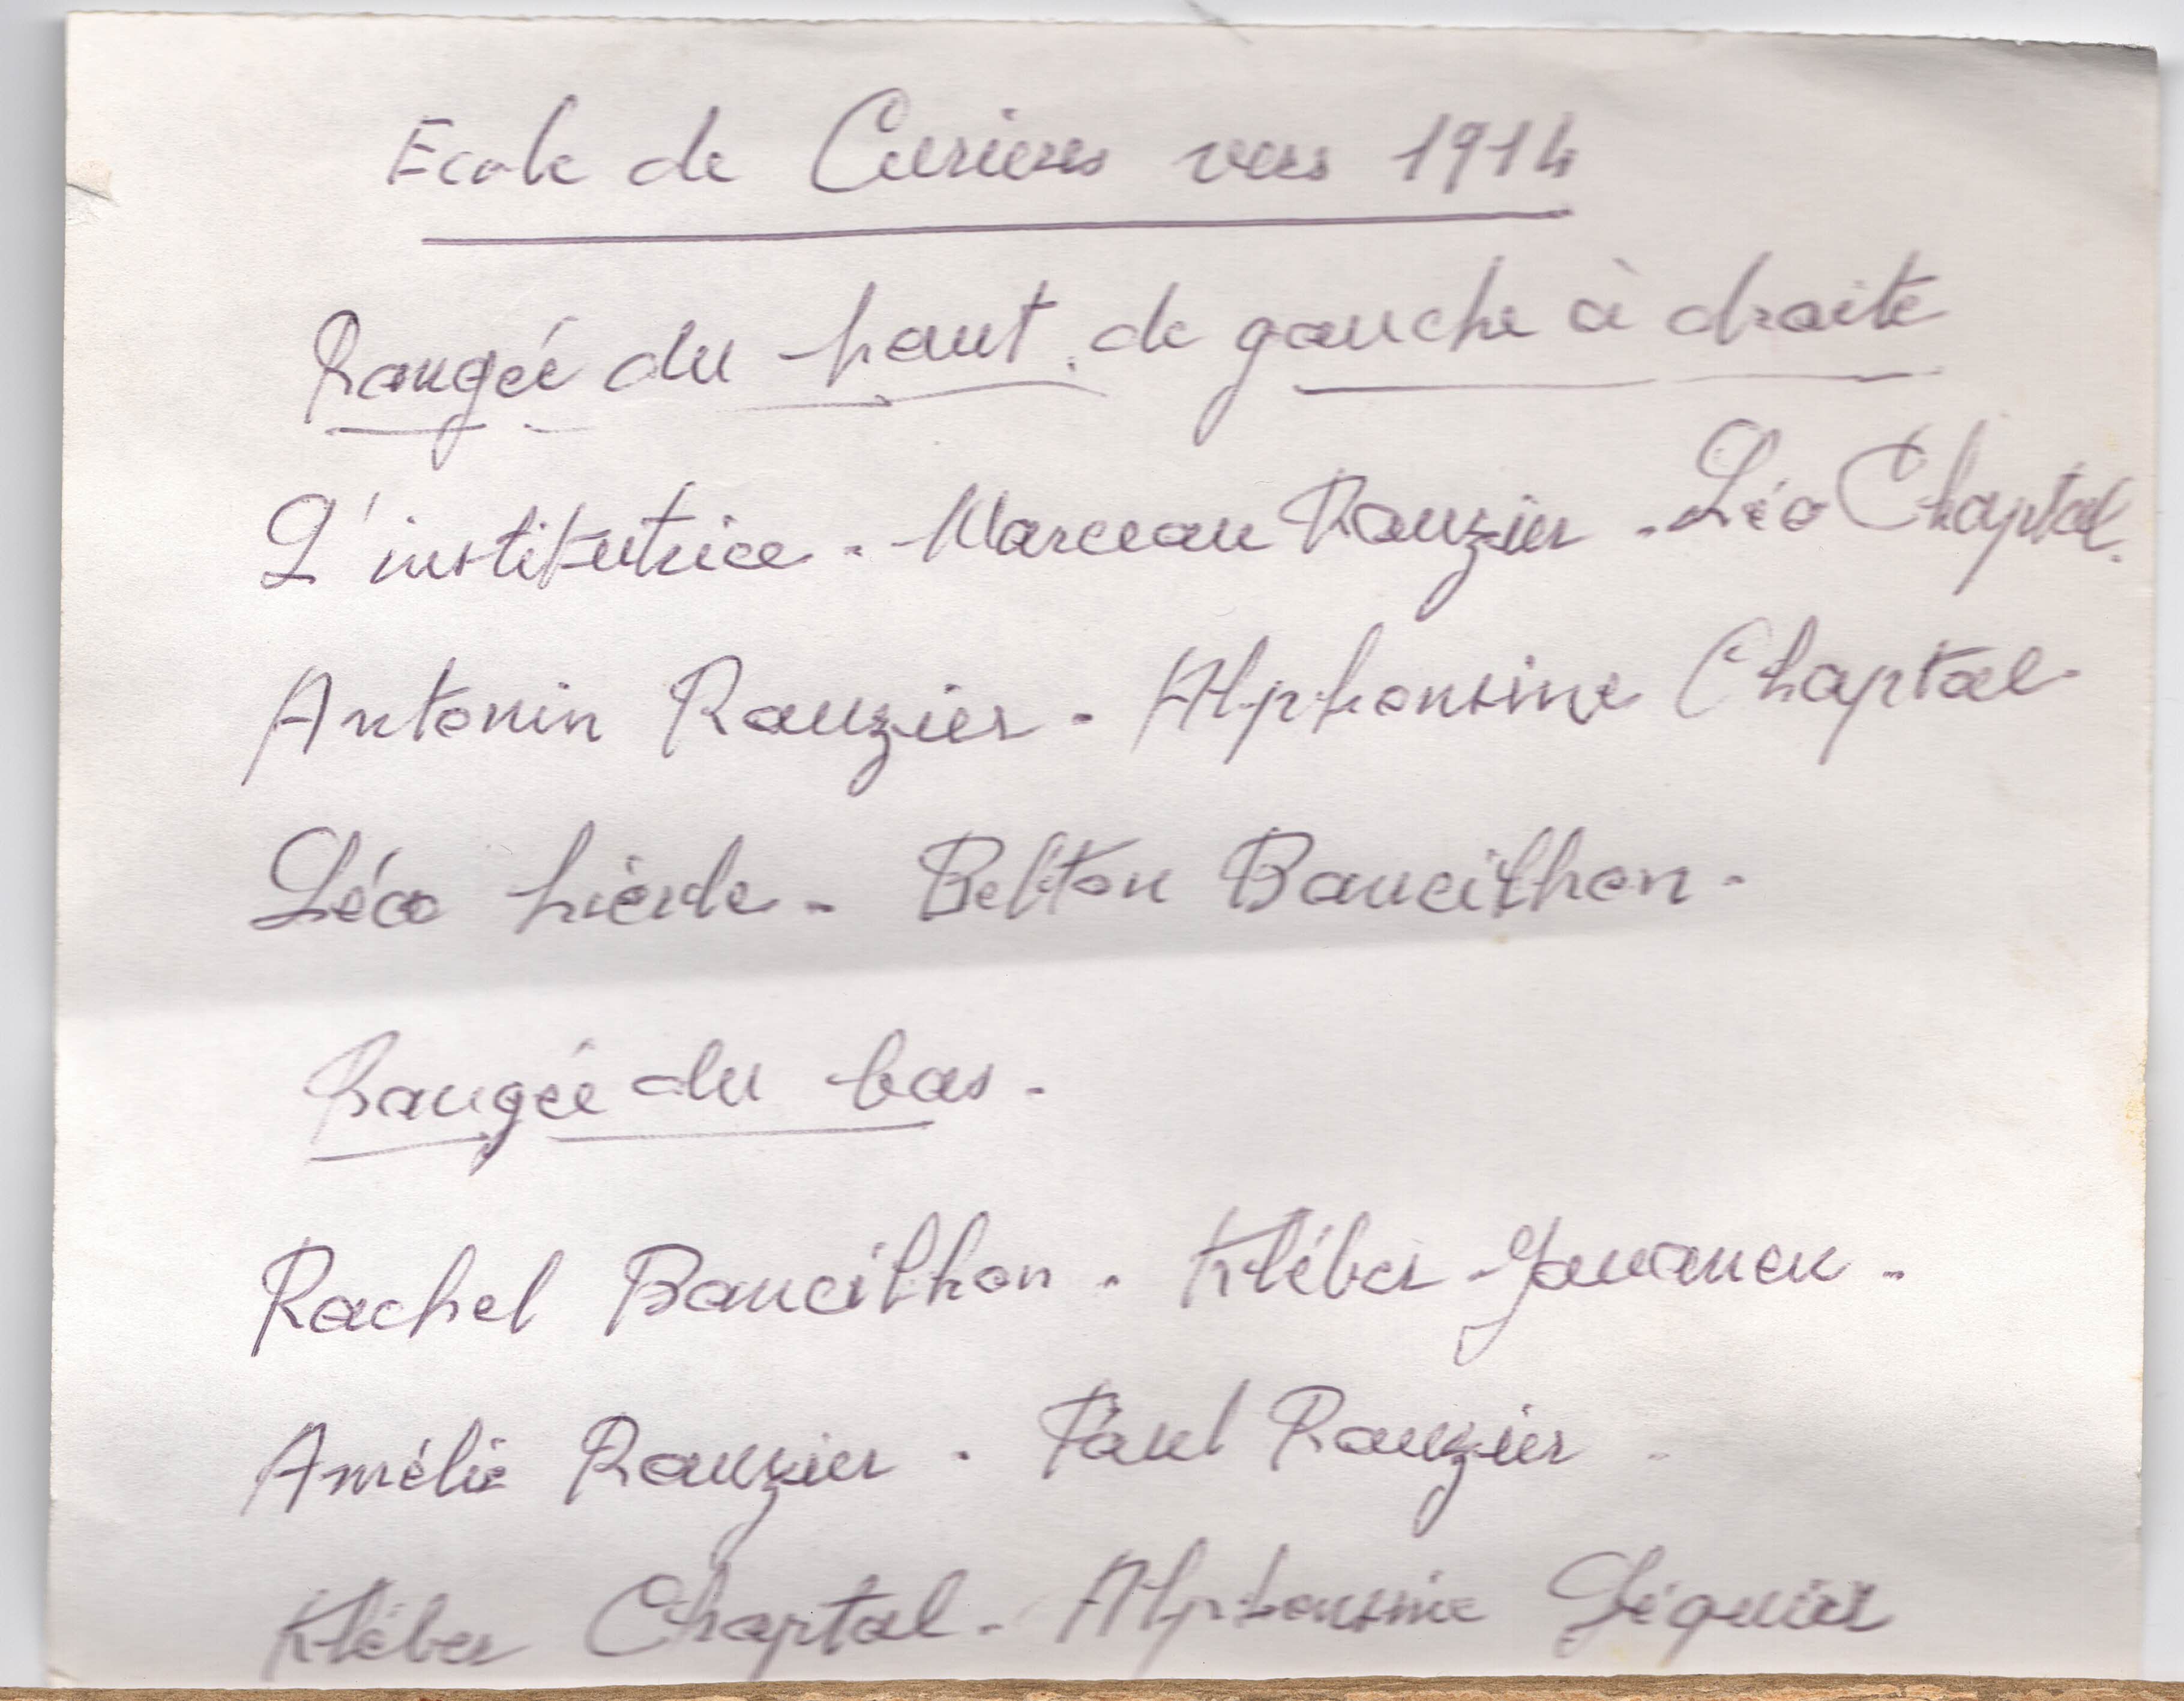 Ecole de Curieres vers 1914
Rangée du haut. de gauche à droite
L'institutrice. - Marceau Rauzier. Léo Chaptal.
Antonin Rauzier - Alphonsine Chaptal
Léo - Belton Baucilhon -
Rangée du bas -
Rachel Baucilhon. Kléber Jouanen -
Amélie Rauzier. Paul Rauzier
Kléber Chaptal - Alphonsine Séquier